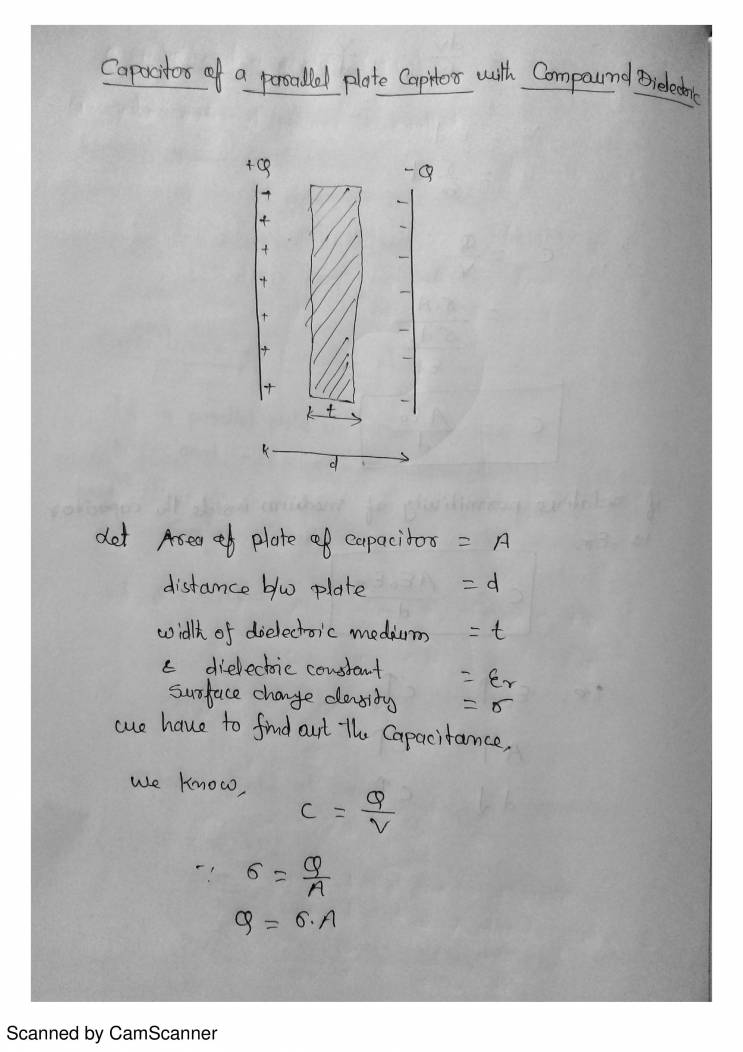 Capacitor of a parallel plate Capittor with Compound Dielectric
+Q
-Q
t
d
Let Area of plate of capacitor = A
distance b/w plate = d
width of dielectric medium = t
& dielectric constant = εr
Surface charge density = σ
we have to find out the Capacitance,
we know,
C = Q/V
∵ σ = Q/A
Q = σ.A
Scanned by CamScanner